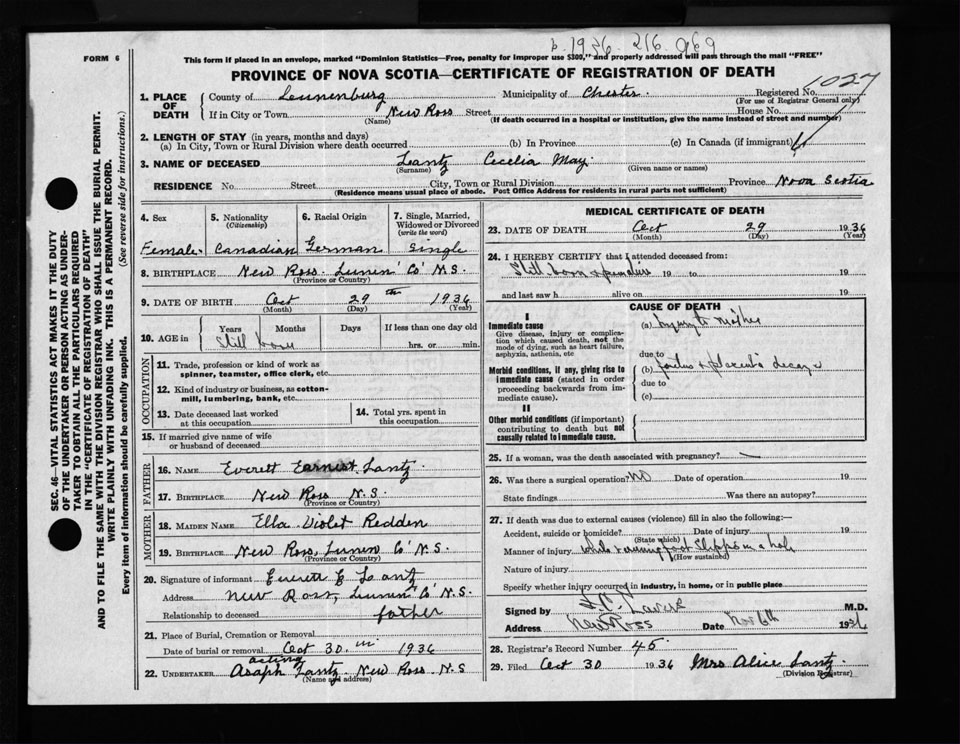 b. 1936. 216 969
FORM 6
This form if placed in an envelope, marked "Dominion Statistics—Free, penalty for improper use $300," and properly addressed will pass through the mail "FREE"
PROVINCE OF NOVA SCOTIA—CERTIFICATE OF REGISTRATION OF DEATH
1. PLACE OF DEATH
County of Lunenburg Municipality of Chester. Registered No. 1027
(For use of Registrar General only)
If in City or Town New Ross Street House No.
(Name) (If death occurred in a hospital or institution, give the name instead of street and number)
2. LENGTH OF STAY (in years, months and days)
(a) In City, Town or Rural Division where death occurred (b) In Province (c) In Canada (if immigrant)
3. NAME OF DECEASED Lantz Cecelia May.
(Surname) (Given name or names)
RESIDENCE No. Street City, Town or Rural Division Province Nova Scotia
(Residence means usual place of abode. Post Office Address for residents in rural parts not sufficient)
4. Sex 5. Nationality (Citizenship) 6. Racial Origin 7. Single, Married, Widowed or Divorced (write the word)
Female. Canadian German Single
8. BIRTHPLACE New Ross. Lunen' Co' N.S.
(Province or Country)
9. DATE OF BIRTH Oct 29th 1936
(Month) (Day) (Year)
10. AGE in Years Months Days If less than one day old
Still born hrs. or min.
OCCUPATION
11. Trade, profession or kind of work as
spinner, teamster, office clerk, etc.
12. Kind of industry or business, as cotton-
mill, lumbering, bank, etc.
13. Date deceased last worked
at this occupation
14. Total yrs. spent in
this occupation
15. If married give name of wife
or husband of deceased
FATHER
16. NAME Everett Earnest Lantz.
17. BIRTHPLACE New Ross N.S.
(Province or Country)
MOTHER
18. MAIDEN NAME Ella Violet Redden
19. BIRTHPLACE New Ross, Lunen Co' N.S.
(Province or Country)
20. Signature of informant Everett E Lantz
Address New Ross, Lunen' Co' N.S.
Relationship to deceased father
21. Place of Burial, Cremation or Removal
Date of burial or removal Oct 30 1936
acting
22. UNDERTAKER Asaph Lantz. New Ross. N.S
(Name and address)
MEDICAL CERTIFICATE OF DEATH
23. DATE OF DEATH Oct 29 1936
(Month) (Day) (Year)
24. I HEREBY CERTIFY that I attended deceased from:
Still born 19 to 19
and last saw h alive on 19
CAUSE OF DEATH
I
Immediate cause
Give disease, injury or complica-
tion which caused death, not the
mode of dying, such as heart failure,
asphyxia, asthenia, etc
(a) injury to mother
due to
Morbid conditions, if any, giving rise to
immediate cause (stated in order
proceeding backwards from im-
mediate cause).
(b)
due to
(c)
II
Other morbid conditions (if important)
contributing to death but not
causally related to immediate cause.
25. If a woman, was the death associated with pregnancy? —
26. Was there a surgical operation? NO Date of operation 19
State findings Was there an autopsy?
27. If death was due to external causes (violence) fill in also the following:—
Accident, suicide or homicide? Date of injury 19
(State which)
Manner of injury foot slipped in a hole
(How sustained)
Nature of injury
Specify whether injury occurred in industry, in home, or in public place
Signed by M.D.
Address New Ross Date Nov 6th 1936
28. Registrar's Record Number 45
29. Filed Oct 30 1936 Mrs Alice Lantz.
(Division Registrar)
SEC. 46—VITAL STATISTICS ACT MAKES IT THE DUTY
OF THE UNDERTAKER OR PERSON ACTING AS UNDER-
TAKER TO OBTAIN ALL THE PARTICULARS REQUIRED
IN THE "CERTIFICATE OF REGISTRATION OF DEATH"
AND TO FILE THE SAME WITH THE DIVISION REGISTRAR WHO SHALL ISSUE THE BURIAL PERMIT.
WRITE PLAINLY WITH UNFADING INK. THIS IS A PERMANENT RECORD.
Every item of information should be carefully supplied. (See reverse side for instructions.)